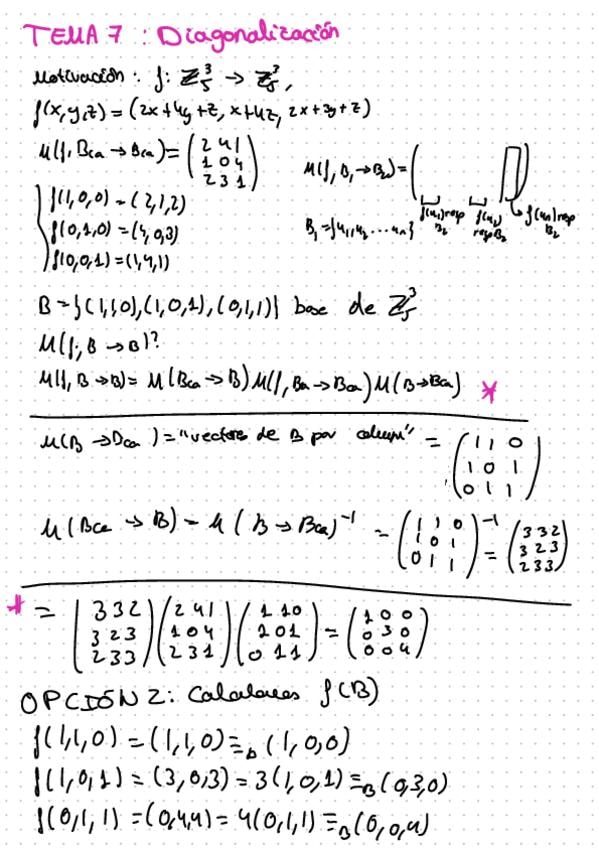 TEMA 7 : Diagonalización
Motivación: f: Z₅³ → Z₅³,
f(x,y,z) = (2x+4y+z, x+4z, 2x+3y+z)
M(f, Bca → Bca) = (2 4 1
1 0 4
2 3 1)
M(f, B₁→B₂) = ( )
f(u₁) resp B₂ f(u₂) resp B₂ f(un) resp B₂
B₁ = {u₁, u₂ ... un}
f(1,0,0) = (2,1,2)
f(0,1,0) = (4,0,3)
f(0,0,1) = (1,4,1)
B = {(1,1,0), (1,0,1), (0,1,1)} base de Z₅³
M(f, B → B)?
M(f, B → B) = M(Bca → B) M(f, Bca → Bca) M(B → Bca) *
M(B → Bca) = "vectores de B por column" = (1 1 0
1 0 1
0 1 1)
M(Bca → B) = M(B → Bca)⁻¹ = (1 1 0
1 0 1
0 1 1)⁻¹ = (3 3 2
3 2 3
2 3 3)
* = (3 3 2
3 2 3
2 3 3) (2 4 1
1 0 4
2 3 1) (1 1 0
1 0 1
0 1 1) = (1 0 0
0 3 0
0 0 4)
OPCIÓN 2: Calculamos f(B)
f(1,1,0) = (1,1,0) ≡B (1,0,0)
f(1,0,1) = (3,0,3) = 3(1,0,1) ≡B (0,3,0)
f(0,1,1) = (0,4,4) = 4(0,1,1) ≡B (0,0,4)